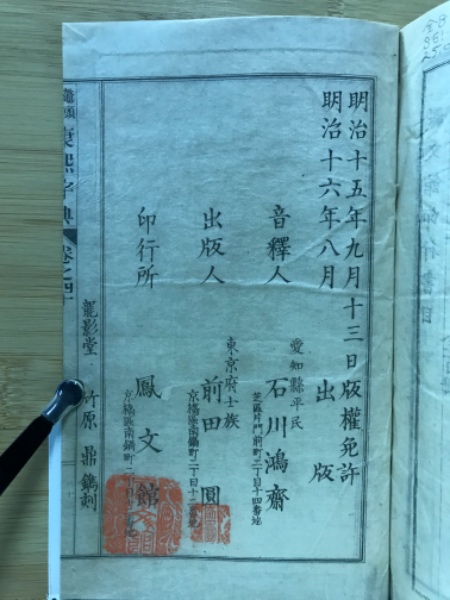 明治十五年九月十三日版權免許
明治十六年八月 出版
音釋人
愛知縣平民
石川鴻齋
芝區片門前町二丁目十四番地
出版人
東京府士族
前田圓
京橋區南鍋町二丁目十二
印行所
鳳文館
京橋區南鍋町二丁目
鼇頭康熙字典
卷之四十
龍影堂
竹原鼎鐫刻